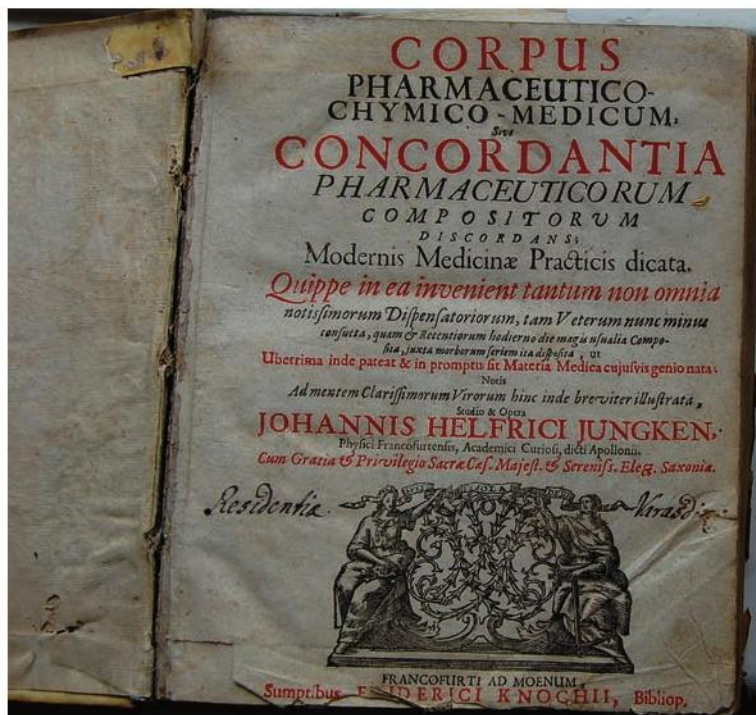 CORPUS
PHARMACEUTICO-
CHYMICO-MEDICUM,
Sive
CONCORDANTIA
PHARMACEUTICORUM
COMPOSITORUM
DISCORDANS;
Modernis Medicinæ Practicis dicata.
Quippe in ea invenient tantum non omnia
notissimorum Dispensatoriorum, tam Veterum nunc minus
consueta, quam & Recentiorum hodierno die magis usualia Compo-
sita, juxta morborum seriem ita disposita, ut
Uberrima inde pateat & in promptu sit Materia Medica cujusvis genio nata:
Notis
Ad mentem Clarissimorum Virorum hinc inde breviter illustrata,
Studio & Opera
JOHANNIS HELFRICI JUNGKEN,
Physici Francofurtensis, Academici Curiosi, dicti Apollonii.
Cum Gratia & Privilegio Sacræ Cæs. Majest. & Sereniss. Elect. Saxoniæ.
Residentiæ
FRANCOFURTI AD MOENUM,
Sumptibus FRIDERICI KNOCHII, Bibliop.